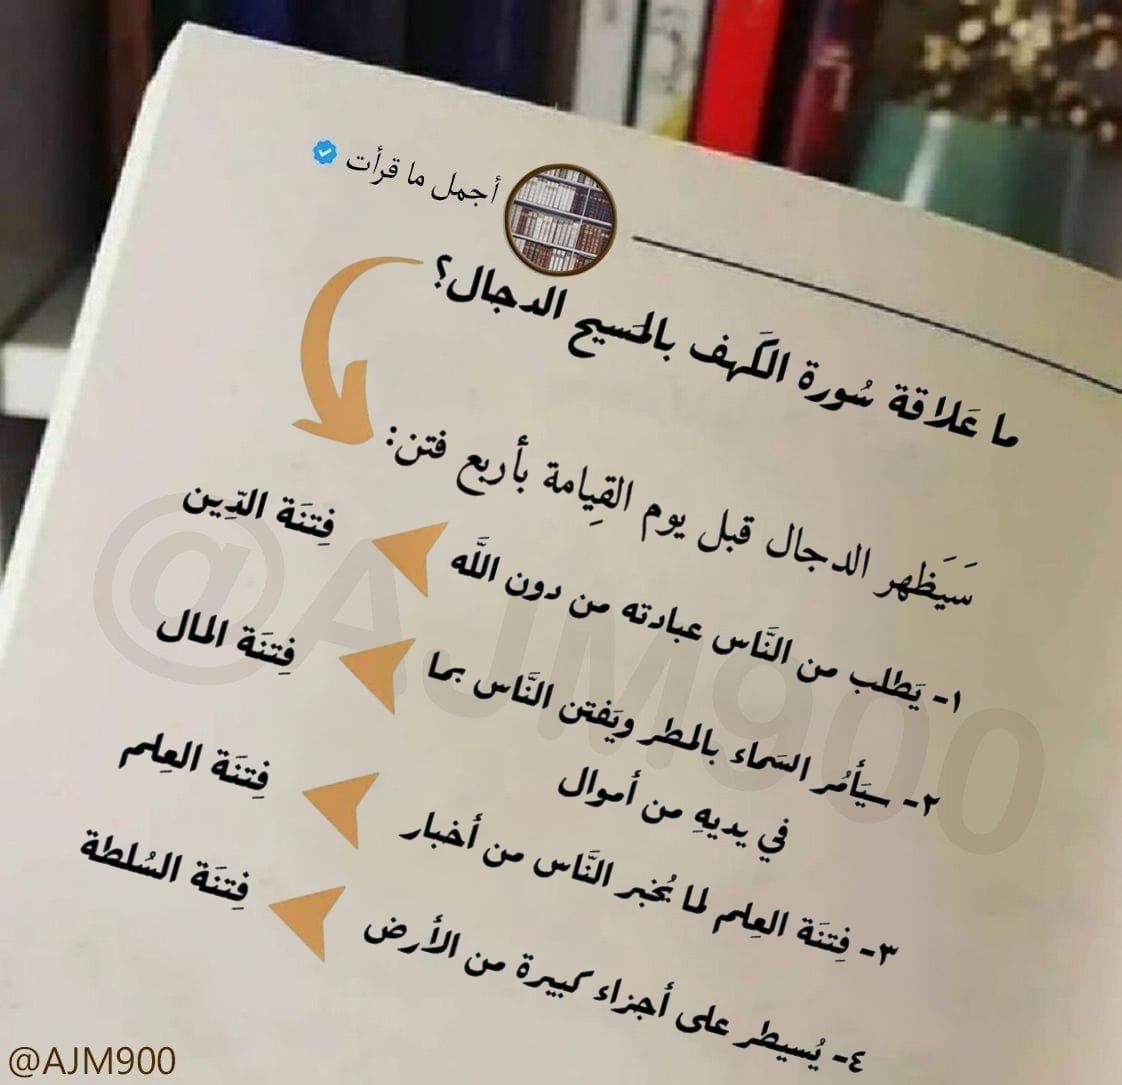 أجمل ما قرأت
ما عَلاقة سُورة الكَهف بالمَسيح الدجال؟
سَيَظهر الدجال قبل يوم القِيامة بأربع فتن:
١- يَطلب من النَّاس عبادته من دون اللَّه
فِتنَة الدِّين
٢- سيَأمُر السَماء بالمطر ويَفتن النَّاس بما
في يديهِ من أموال
فِتنَة المال
٣- فِتنَة العِلم لما يُخبر النَّاس من أخبار
فِتنَة العِلم
٤- يُسيطر على أجزاء كبيرة من الأرض
فِتنَة السُلطة
@AJM900
@AJM900